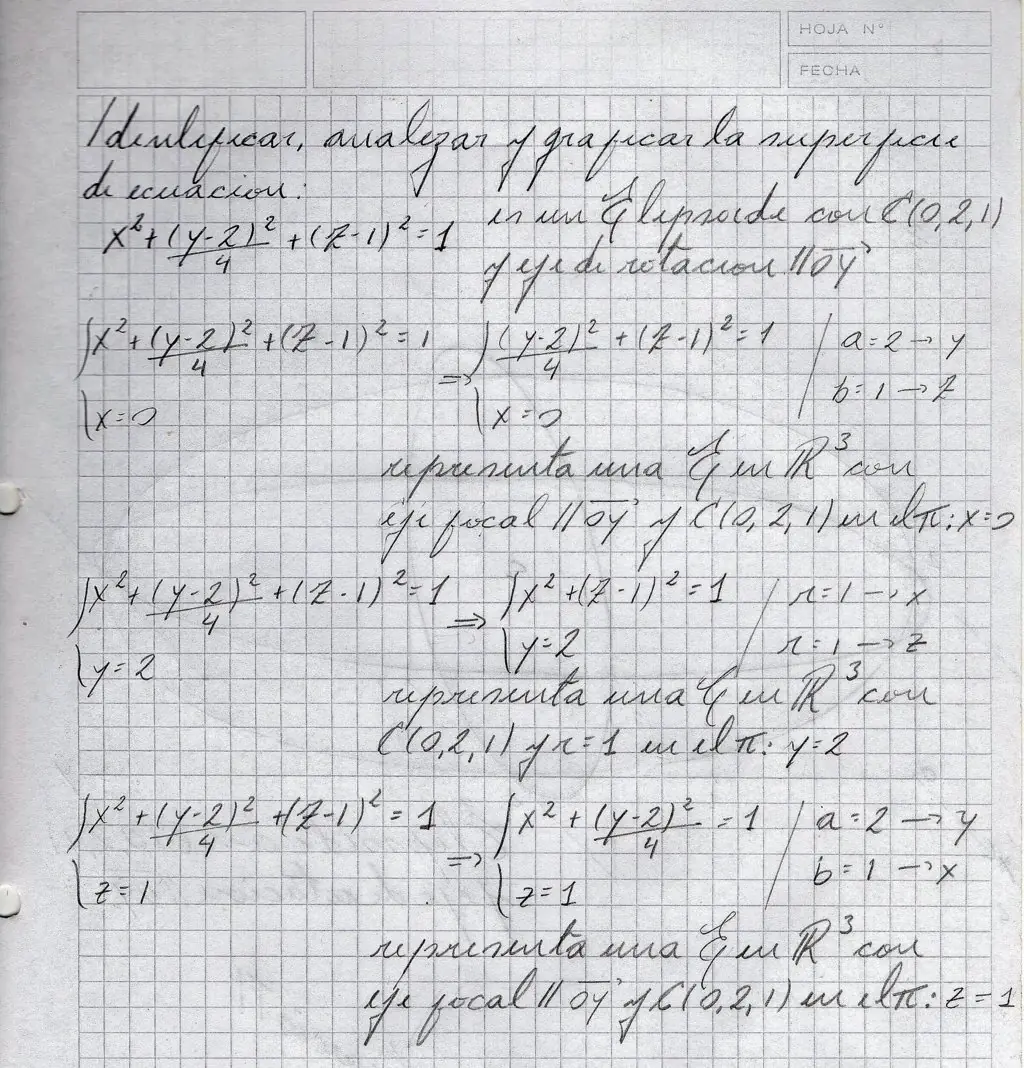 HOJA Nº
FECHA
Identificar, analizar y graficar la superficie
de ecuacion:
x² + (y-2)²/4 + (z-1)² = 1
es un Elipsoide con C(0,2,1)
y eje de rotacion // OY
{x² + (y-2)²/4 + (z-1)² = 1 => {(y-2)²/4 + (z-1)² = 1 / a=2 → y
{x=0 {x=0 b=1 → z
representa una E en R³ con
eje focal // OY y C(0,2,1) en el π: x=0
{x² + (y-2)²/4 + (z-1)² = 1 => {x² + (z-1)² = 1 / r=1 → x
{y=2 {y=2 r=1 → z
representa una E en R³ con
C(0,2,1) y r=1 en el π: y=2
{x² + (y-2)²/4 + (z-1)² = 1 => {x² + (y-2)²/4 = 1 / a=2 → y
{z=1 {z=1 b=1 → x
representa una E en R³ con
eje focal // OY y C(0,2,1) en el π: z=1